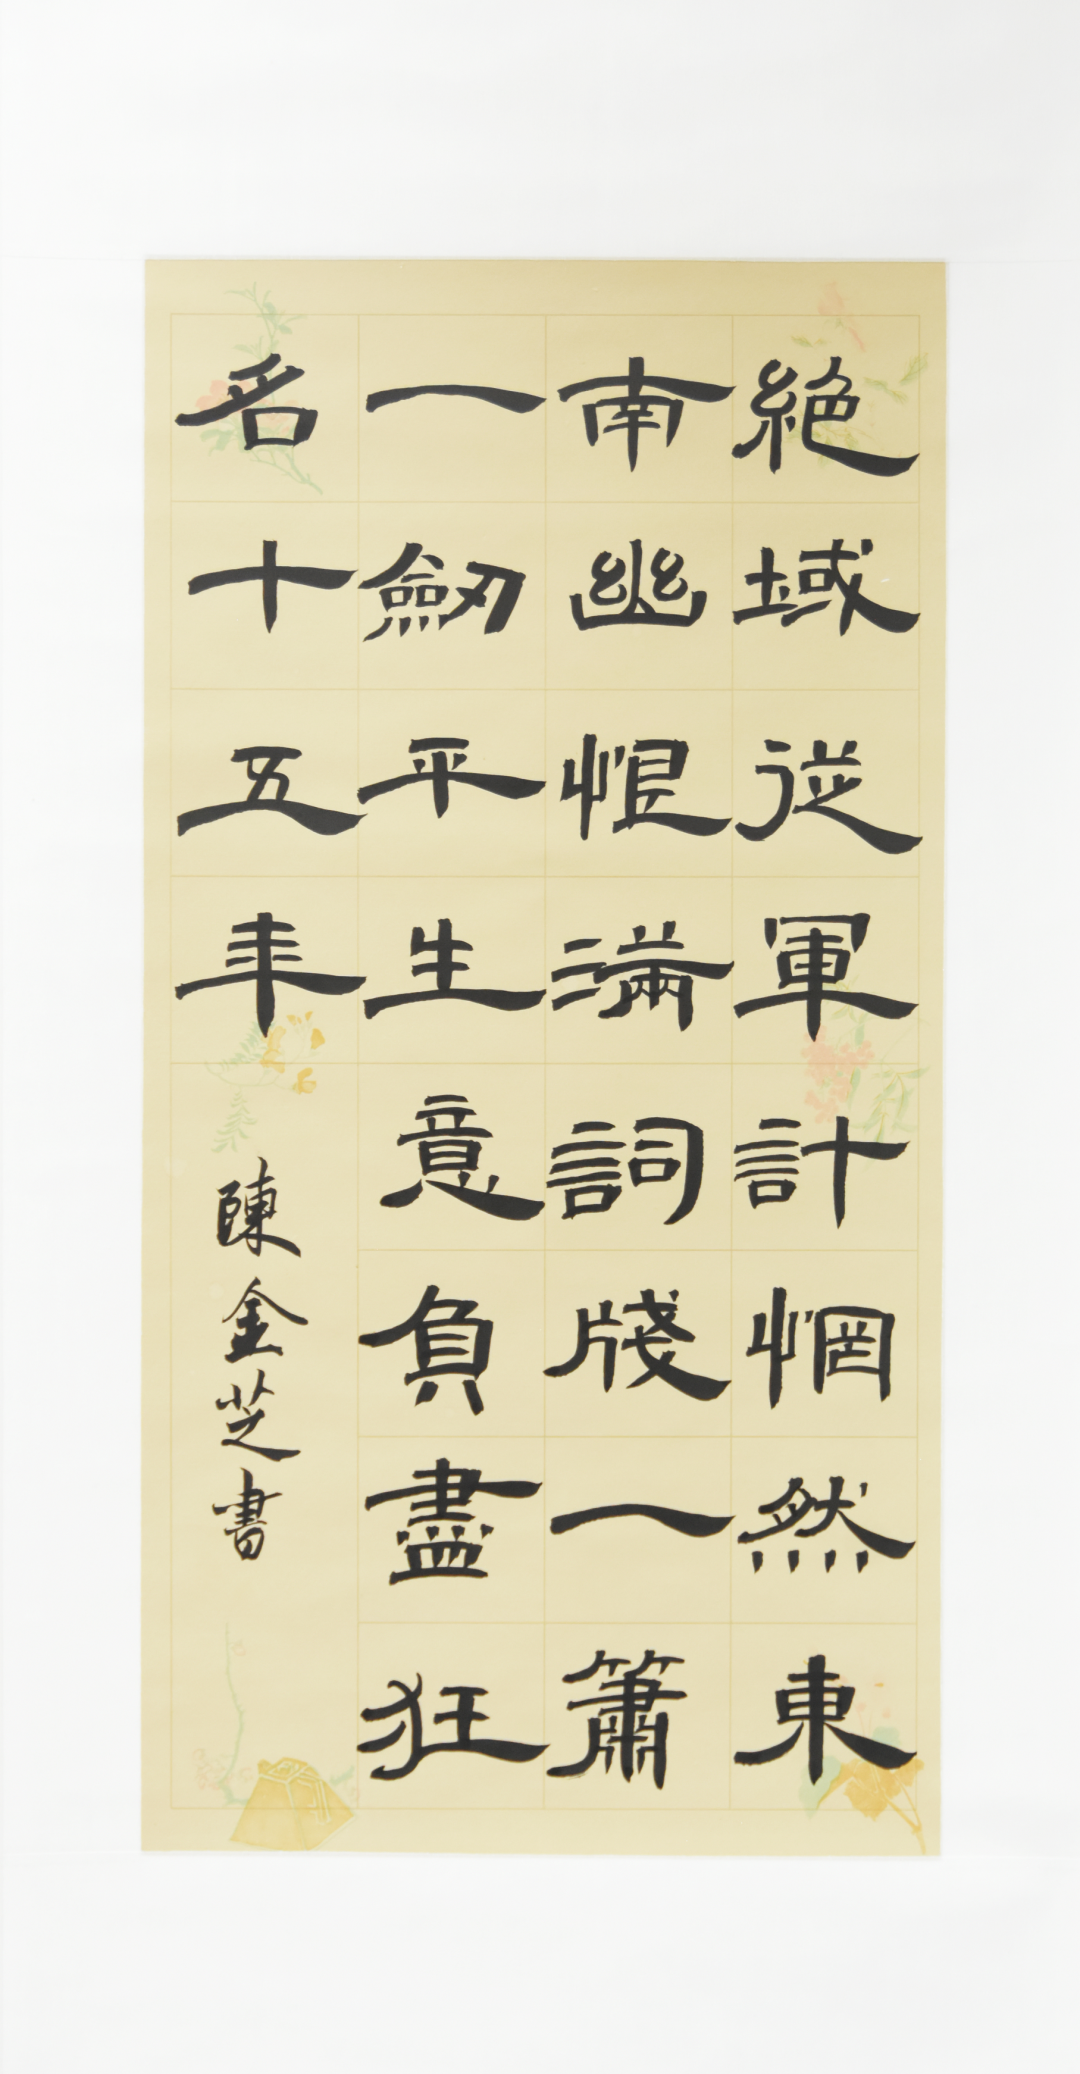 絶域從軍計惘然東
南幽恨滿詞牋一簫
一劒平生意負盡狂
名十五年
陳金芝書